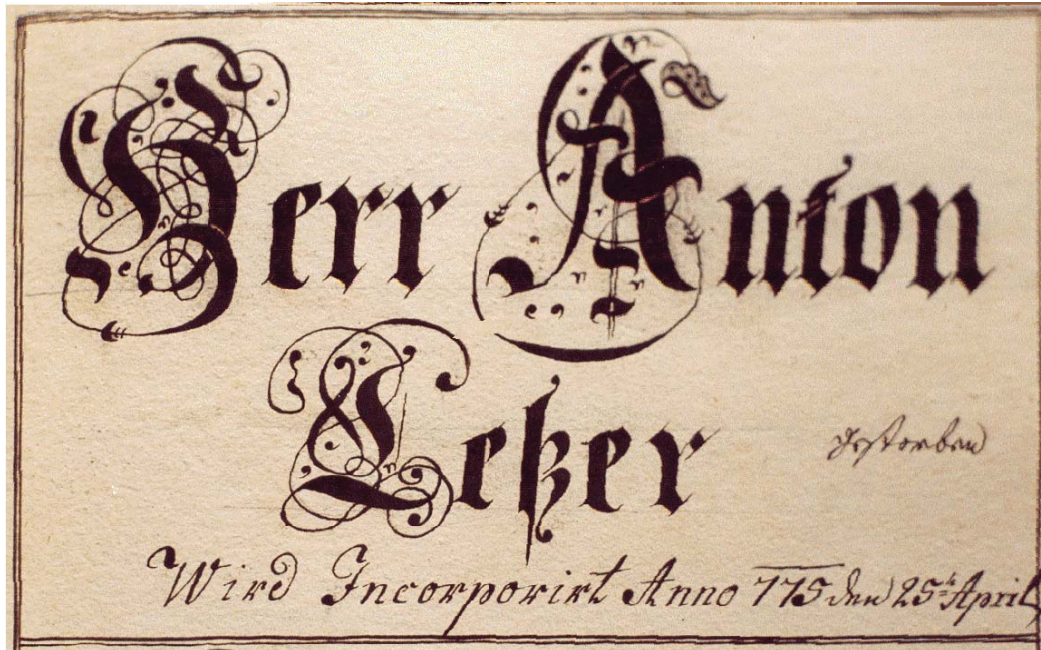 Herr Anton
gestorben
Wird Incorporirt Anno 775 den 25t April